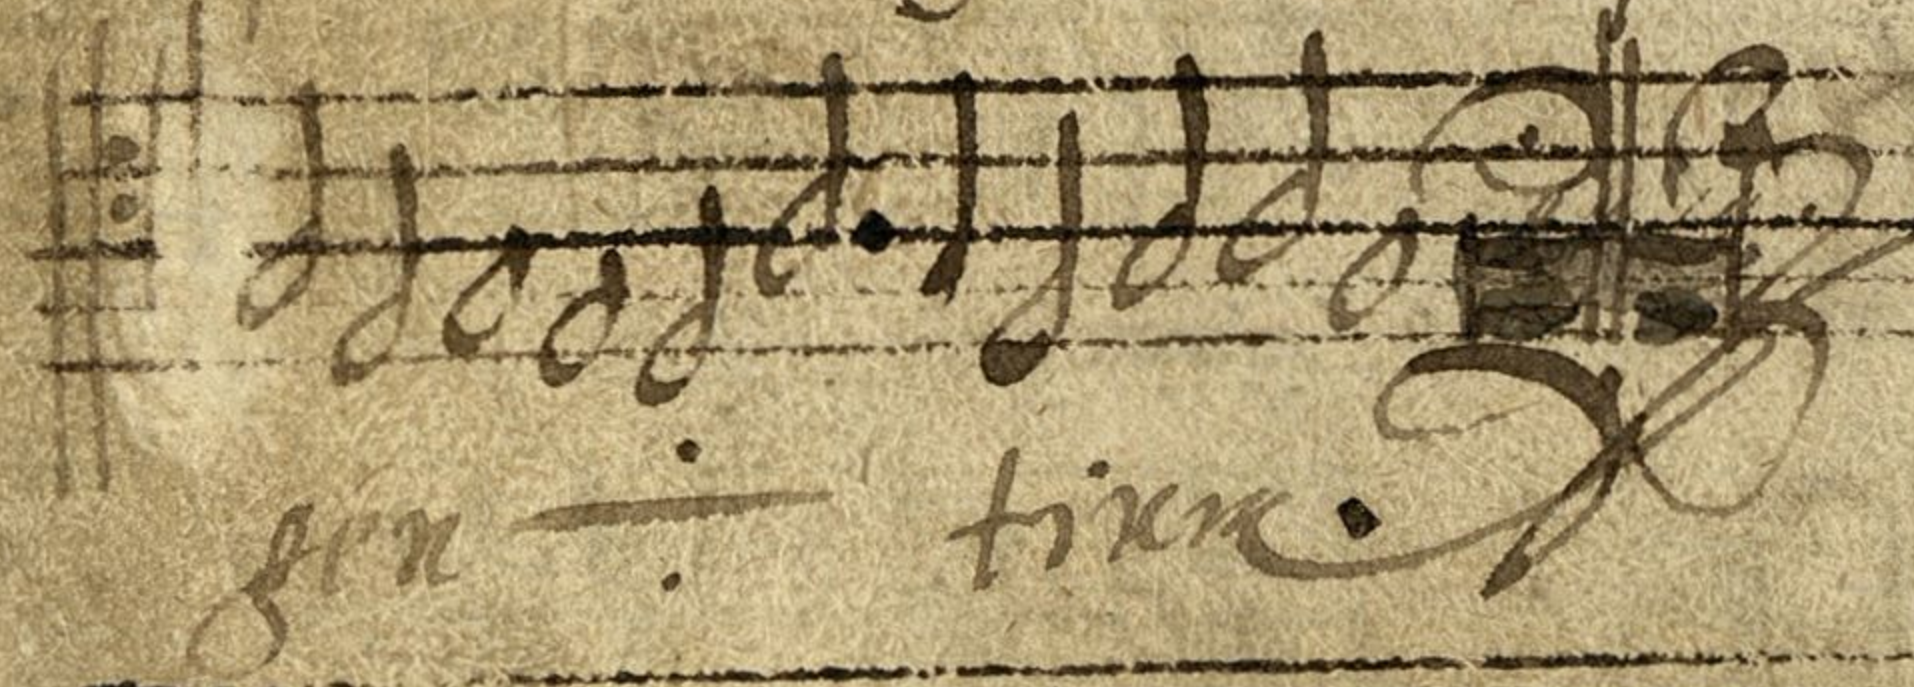 gen ÷ tium.